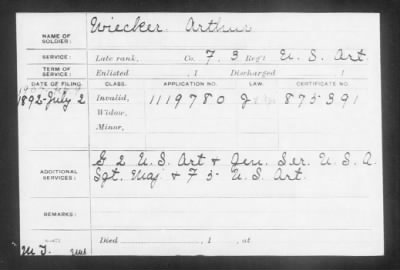 NAME OF SOLDIER: Wiecker Arthur
SERVICE: Late rank, Co. F. 3 Reg't U. S. Art.
TERM OF SERVICE: Enlisted , 1 Discharged 1
DATE OF FILING. CLASS. APPLICATION NO. LAW. CERTIFICATE NO.
1892-July 2 Invalid, 1119780 J 875391
Widow,
Minor,
ADDITIONAL SERVICES: G 2 U.S. Art & Gen. Ser. U.S.A.
Sgt. Maj & F 5- U.S. Art.
REMARKS:
Died , 1 , at